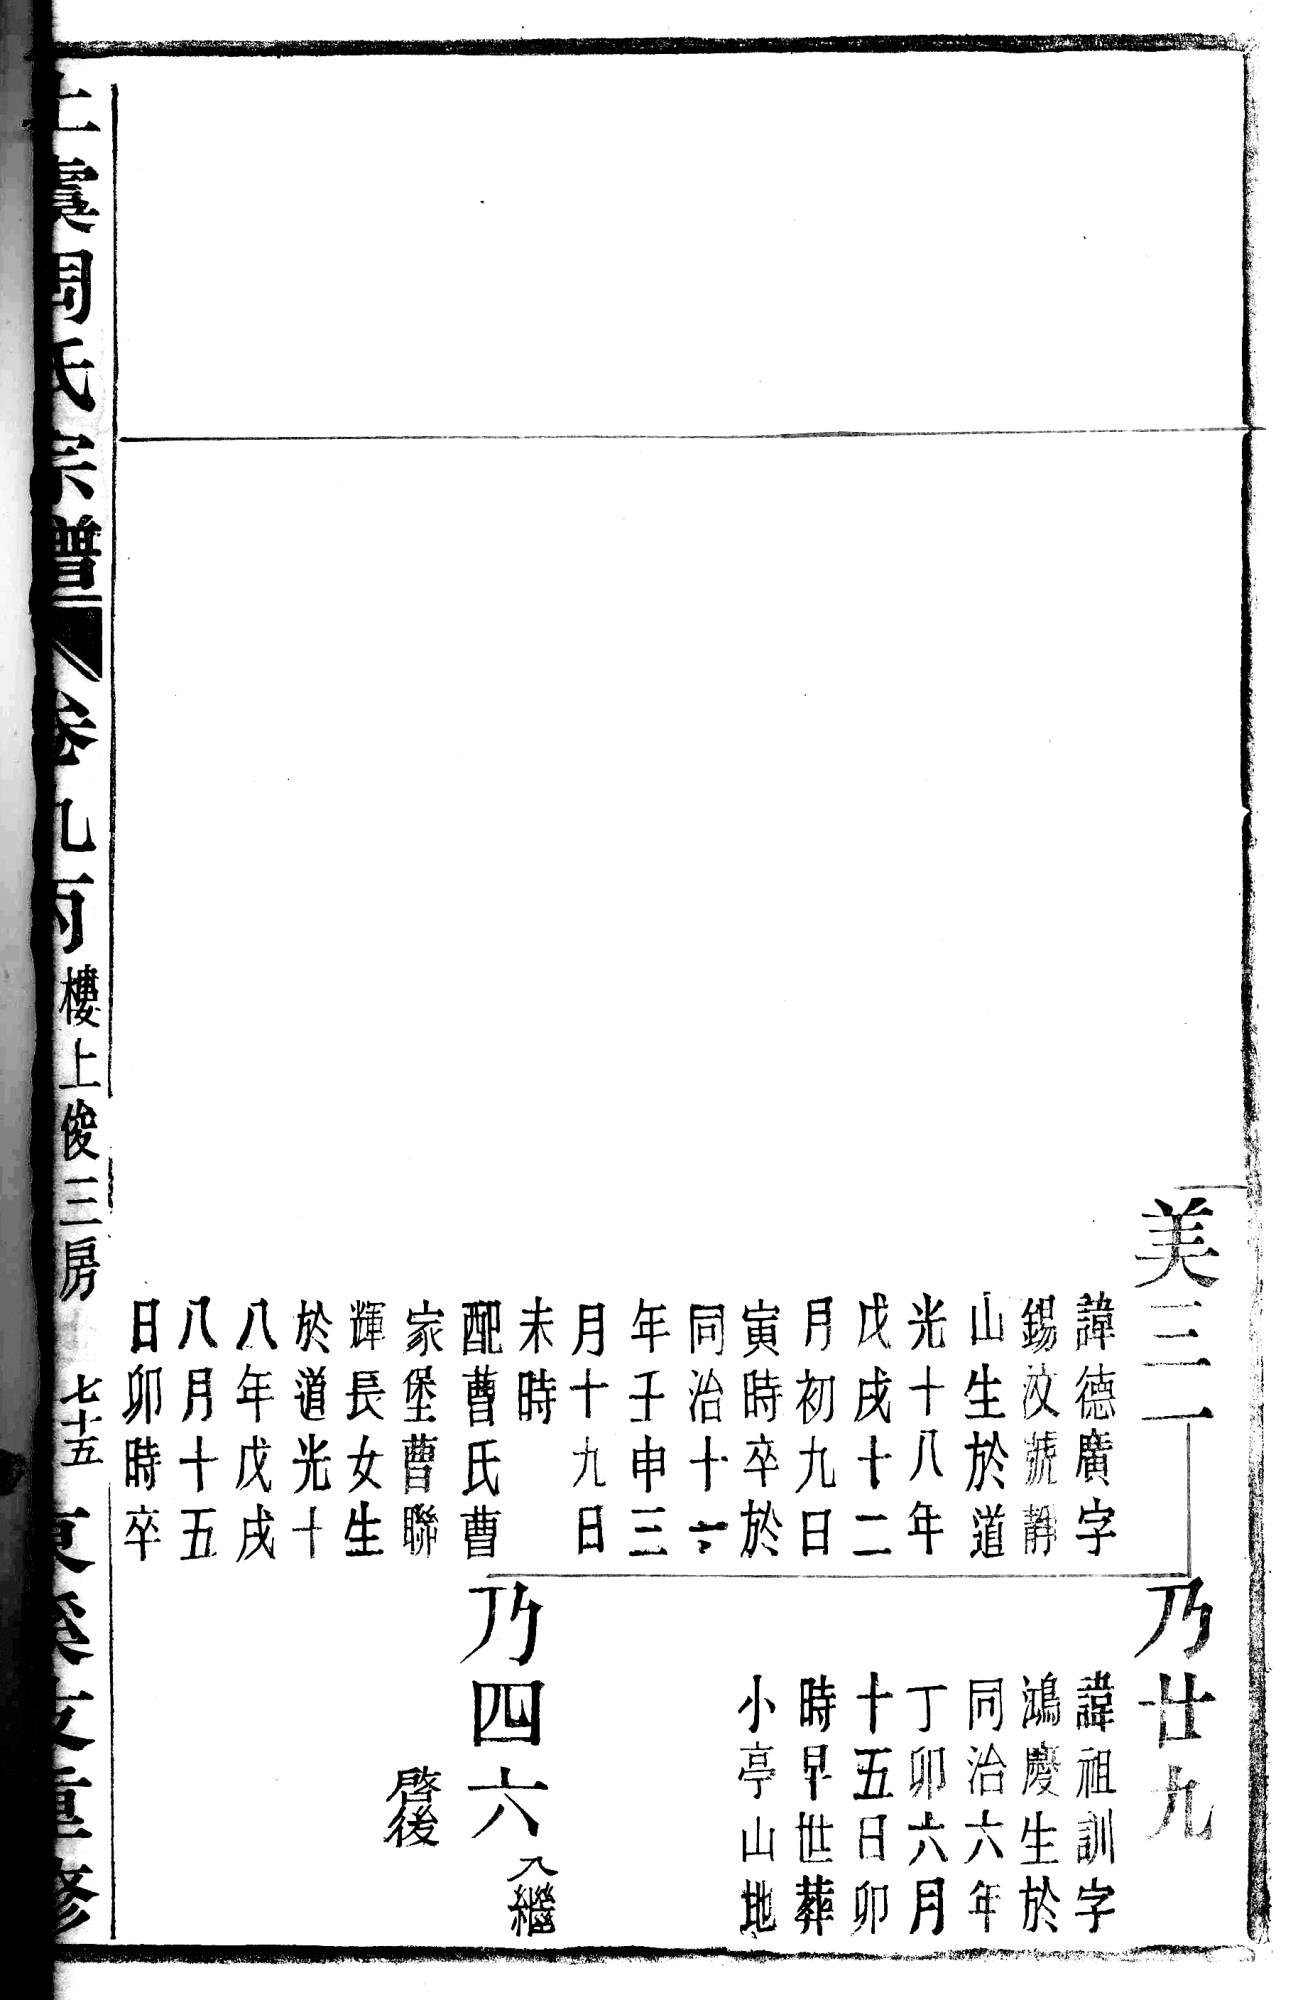 美三二
諱德廣字
錫汶號靜
山生於道
光十八年
戊戌十二
月初九日
寅時卒於
同治十一
年壬申三
月十九日
未時
配曹氏曹
家堡曹聯
輝長女生
於道光十
八年戊戌
八月十五
日卯時卒
乃廿九
諱祖訓字
鴻慶生於
同治六年
丁卯六月
十五日卯
時早世葬
小亭山地
乃四六
入繼
啓後
上虞周氏宗譜
卷九丙
樓上俊三房
七十五
東溪支重修